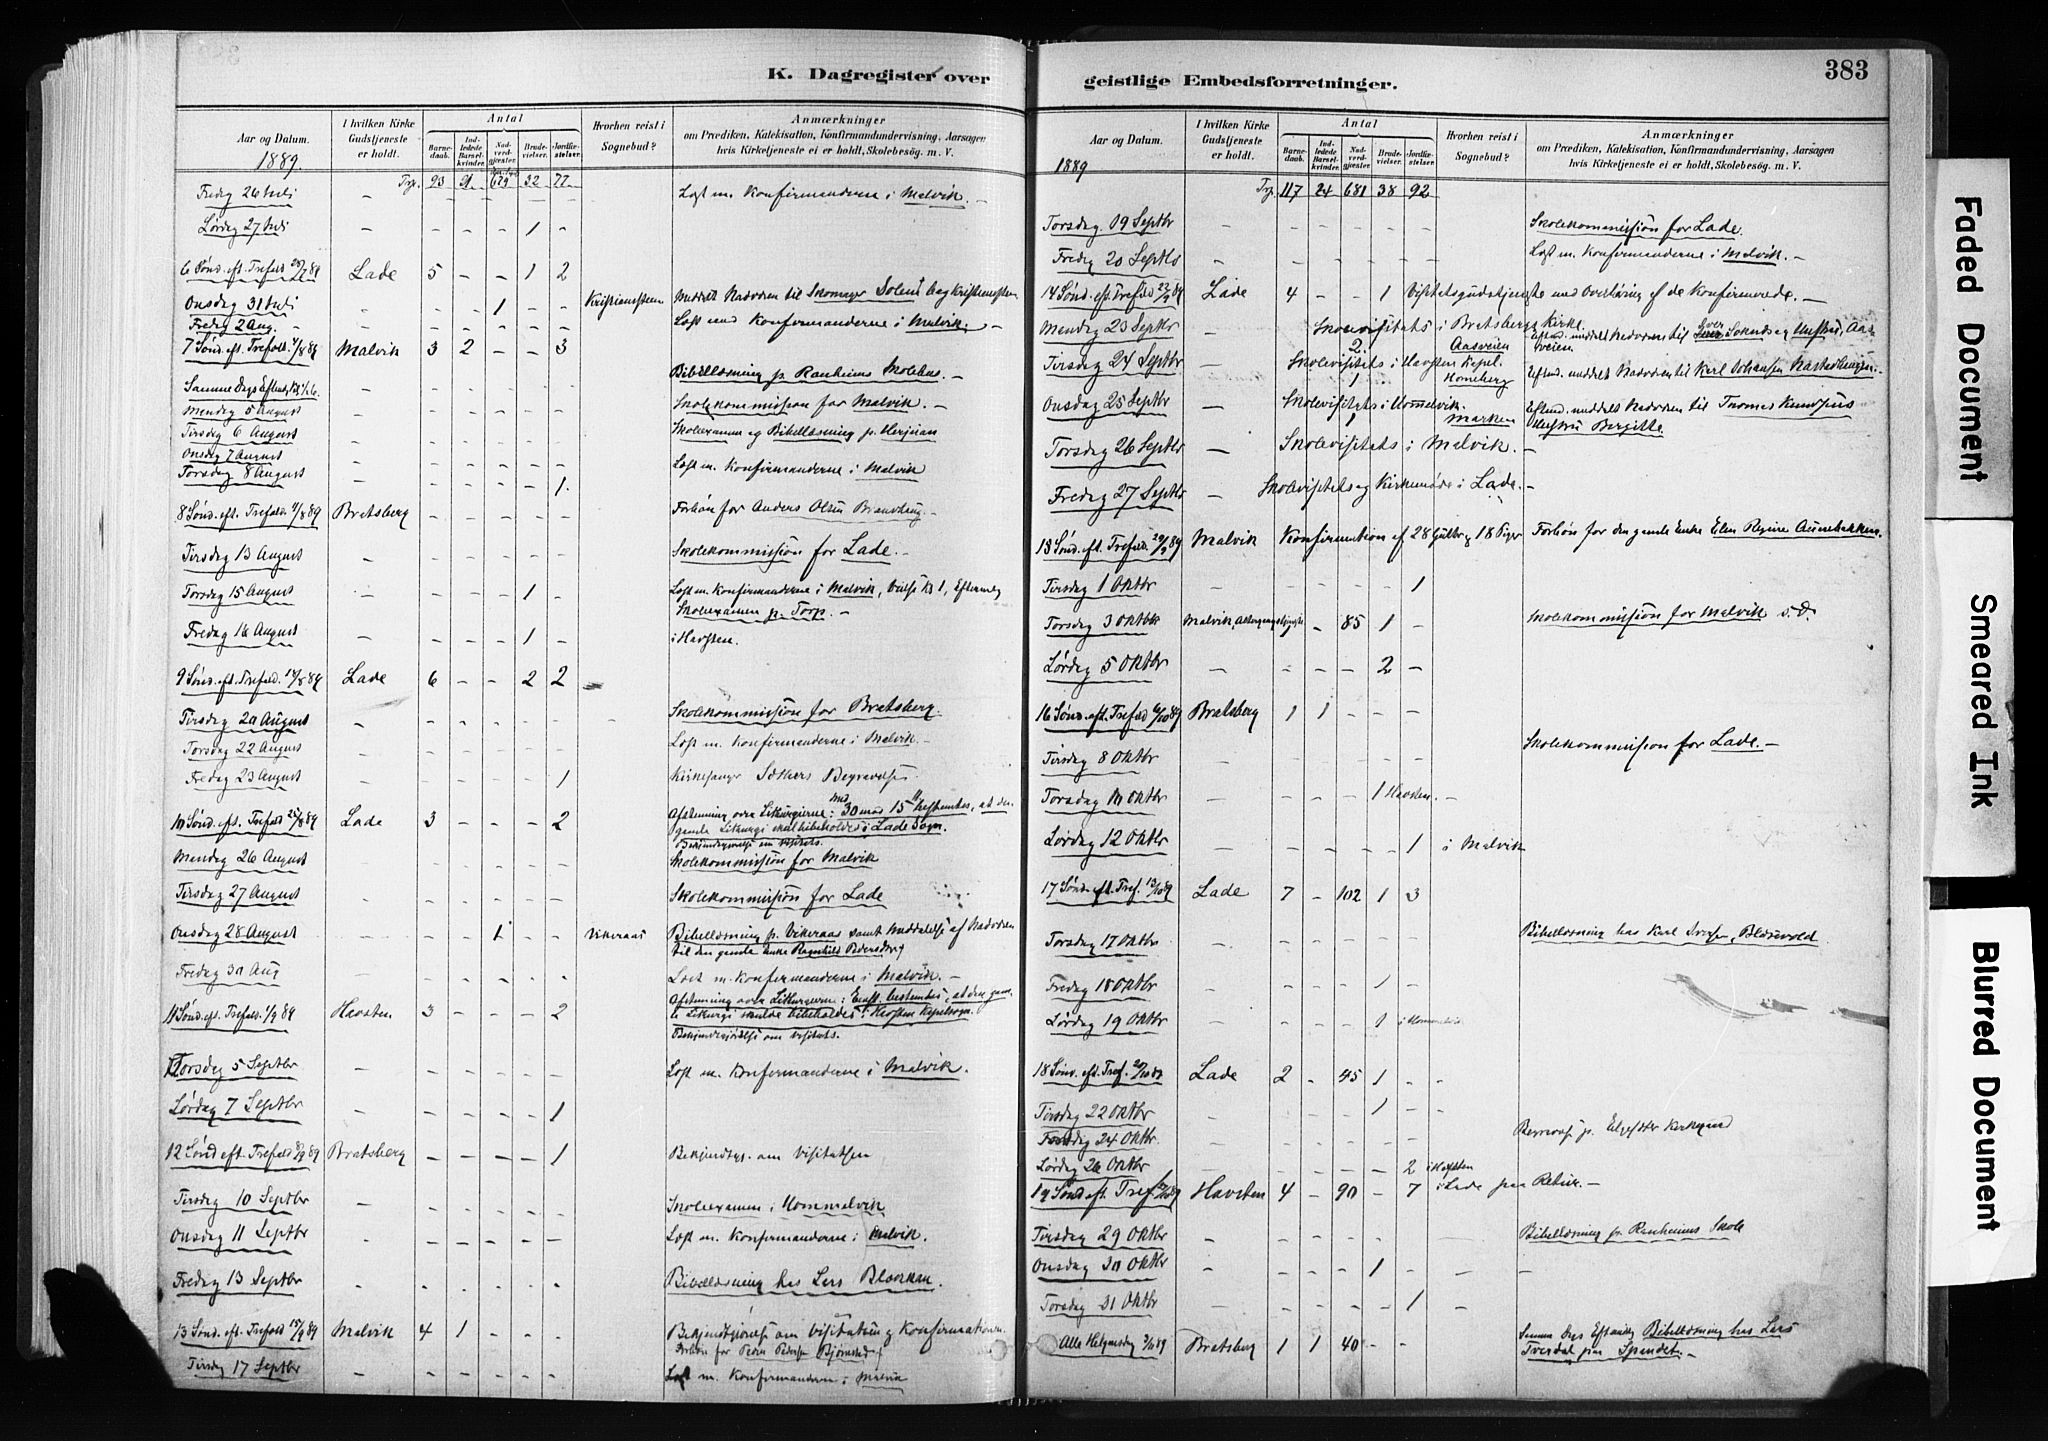 K. Dagregister over
Aar og Datum.
1889.
I hvilken Kirke Gudstjeneste er holdt.
Antal
Barnedaab.
Indledede Barselkvinder.
Nadverdgjester.
Brudevielser.
Jordfæstelser.
Hvorhen reist i Sognebud?
Anmærkninger
om Prædiken, Katekisation, Konfirmandundervisning, Aarsagen
hvis Kirketjeneste ei er holdt, Skolebesøg. m. V.
Trp. 93 21 679 32 77
Fredag 26 Juli – Læst m. Konfirmanderne i Malvik. –
Lørdag 27 Juli – – – – 1 –
6 Sønd. eft. Trefold. 28/7 89 Lade 5 – – 1 2
Onsdag 31 Juli – – – 1 – – Kristiansten Meddelt Nadverden til Skomager
Fredag 2 Aug. – – – – – – Læst med Konfirmanderne i Malvik. –
7 Sønd. eft. Trefold. 4/8 89 Malvik 3 2 – – 3
Samme Dags Efterm. Kl. Bibellæsning p. Ranheims Skolehus. –
Mandag 5 August – – – – – – Skolekommission for Malvik. –
Tirsdag 6 August – – – – – – Skoleexamen og Bibellæsning p.
Onsdag 7 August – – – – – – Læst m. Konfirmanderne i Malvik
Torsdag 8 August – – – – – 1.
8 Sønd. eft. Trefold. 11/8 89 Bratsberg – – – – – Forbøn for Anders Olsen
Tirsdag 13 August – – – – – – Skolekommission for Lade. –
Torsdag 15 August – – – – 1 – Læst m. Konfirmanderne i Malvik, Vielse Kl 1, Eftermdg
Skoleexamen p. Torp. –
Fredag 16 August – – – – 1 – i Havsten.
9 Sønd. eft. Trefold. 18/8 89 Lade 6 – – 2 2 –
Tirsdag 20 August – – – – – – – Skolekommission for Bratsberg.
Torsdag 22 August – – – – – – Læst m. Konfirmanderne i Malvik. –
Fredag 23 August – – – – – 1 Kirkesanger Begravelse.
10 Sønd. eft. Trefold. 25/8 89 Lade 3 – – – 2 Afstemning over Liturgierne: med 30 mod 15 bestemtes, at den
gamle Liturgi skal bibeholdes i Lade Sogn.
Bekjendtgjørelse om Visitats.
Mandag 26 August – – – – – – Skolekommission for Malvik
Tirsdag 27 August – – – – – – Skolekommission for Lade
Onsdag 28 August – – – 1 – – Vikeraas Bibellæsning p. Vikeraas samt Meddelelse af Nadverden
til den gamle Enke Ragnhild Pedersdtr
Fredag 30 Aug – – – – – – Læst m. Konfirmanderne i Malvik. –
11 Sønd. eft. Trefold. 1/9 89 Havsten 3 – – – 2 Afstemning over Liturgierne: bestemtes, at den gam-
le Liturgi skulde bibeholdes i Havsten Kapelsogn.
Bekjendtgjørelse om Visitats.
Torsdag 5 Septbr – – – – – – Læst m. Konfirmanderne i Malvik.
Lørdag 7 Septbr – – – – – 1
12 Sønd eft. Trefold 8/9 89 Bratsberg – – – – 1 Bekjendtgj. om Visitatsen
Tirsdag 10 Septbr – – – – – – Skoleexamen i Hommelvik
Onsdag 11 Septbr – – – – – – Læst m. Konfirmanderne i Malvik.
Fredag 13 Septbr – – – – – – Bibellæsning hos Lars
13 Sønd. eft. Trefold 15/9 89 Malvik 4 1 – – – Bekjendtgjørelse om Visitatsen og Konfirmationen.
Forbøn for Peder Pedersen
Tirsdag 17 Septbr – – – – – – Læst m. Konfirmanderne i Malvik
geistlige Embedsforretninger.
383
Aar og Datum.
1889
I hvilken Kirke Gudstjeneste er holdt.
Antal
Barnedaab.
Indledede Barselkvinder.
Nadverdgjester.
Brudevielser.
Jordfæstelser.
Hvorhen reist i Sognebud?
Anmærkninger
om Prædiken, Katekisation, Konfirmandundervisning, Aarsagen
hvis Kirketjeneste ei er holdt, Skolebesøg. m. V.
Trp. 117 24 681 38 92
Torsdag 19 Septbr – – – – – – Skolekommission for Lade.
Fredag 20 Septbr – – – – – – Læst m. Konfirmanderne i Malvik. –
14 Sønd. eft. Trefold 22/9 89 Lade 4 – – 1 Visitatsgudstjeneste med Overhøring af de Konfirmerede. –
Mandag 23 Septbr – Skolevisitats i Bratsbergs Kirke.
2. Aasveien
Tirsdag 24 Septbr – Skolevisitats i Havsten Kapel. Efterm. meddelt Nadverden til Karl Johansen
1
Onsdag 25 Septbr – Skolevisitats i Hommelvik. Efterm. meddelt Nadverden til Thomas
1 Marken Bergitte.
Torsdag 26 Septbr – Skolevisitats i Malvik. –
Fredag 27 Septbr – Skolevisitats og Kirkemøde i Lade. –
15 Sønd. eft. Trefold. 29/9 89 Malvik Konfirmation af 28 Gutter og 18 Piger Forbøn for den gamle Enke Elen
Tirsdag 1 Oktbr – – – – – 1
Torsdag 3 Oktbr Malvik, Altergangstjeneste – 85 1 – Skolekommission for Malvik s. D.
Lørdag 5 Oktbr – – – – 2 –
16 Sønd. eft. Trefold 6/10 89 Bratsberg 1 1 – – –
Tirsdag 8 Oktbr – – – – – – Skolekommission for Lade. –
Torsdag 10 Oktbr – – – – 1 Havsten. –
Lørdag 12 Oktbr – – – – – 1 i Malvik
17 Sønd. eft. Tref. 13/10 89 Lade 7 – 102 1 3
Torsdag 17 Oktbr – – – – – – Bibellæsning hos Karl
Fredag 18 Oktbr – – – – 1 –
Lørdag 19 Oktbr – – – – 1 i Hommelvik
18 Sønd. eft. Tref. 20/10 89 Lade 2 – 45 1 – –
Tirsdag 22 Oktbr – – – – 1 – –
Torsdag 24 Oktbr. – – – – – – Kirkegaard
Lørdag 26 Oktbr – – – – – 2 i Havsten
19 Sønd. eft. Tref. 27/10 89 Havsten 4 – 90 – 7 i Lade paa Retur. –
Tirsdag 29 Oktbr – – – – – – Bibellæsning p. Ranheims Skole
Onsdag 30 Oktbr – – – – 1 – – –
Torsdag 31 Oktbr – – – – – 1 –
Alle Helgensdag 3/11 89 Bratsberg 1 1 40 – – Samme Dags Eftermdg Bibellæsning hos Lars
Tverdal paa Spandet. –
Faded Document
Smeared Ink
Blurred Document